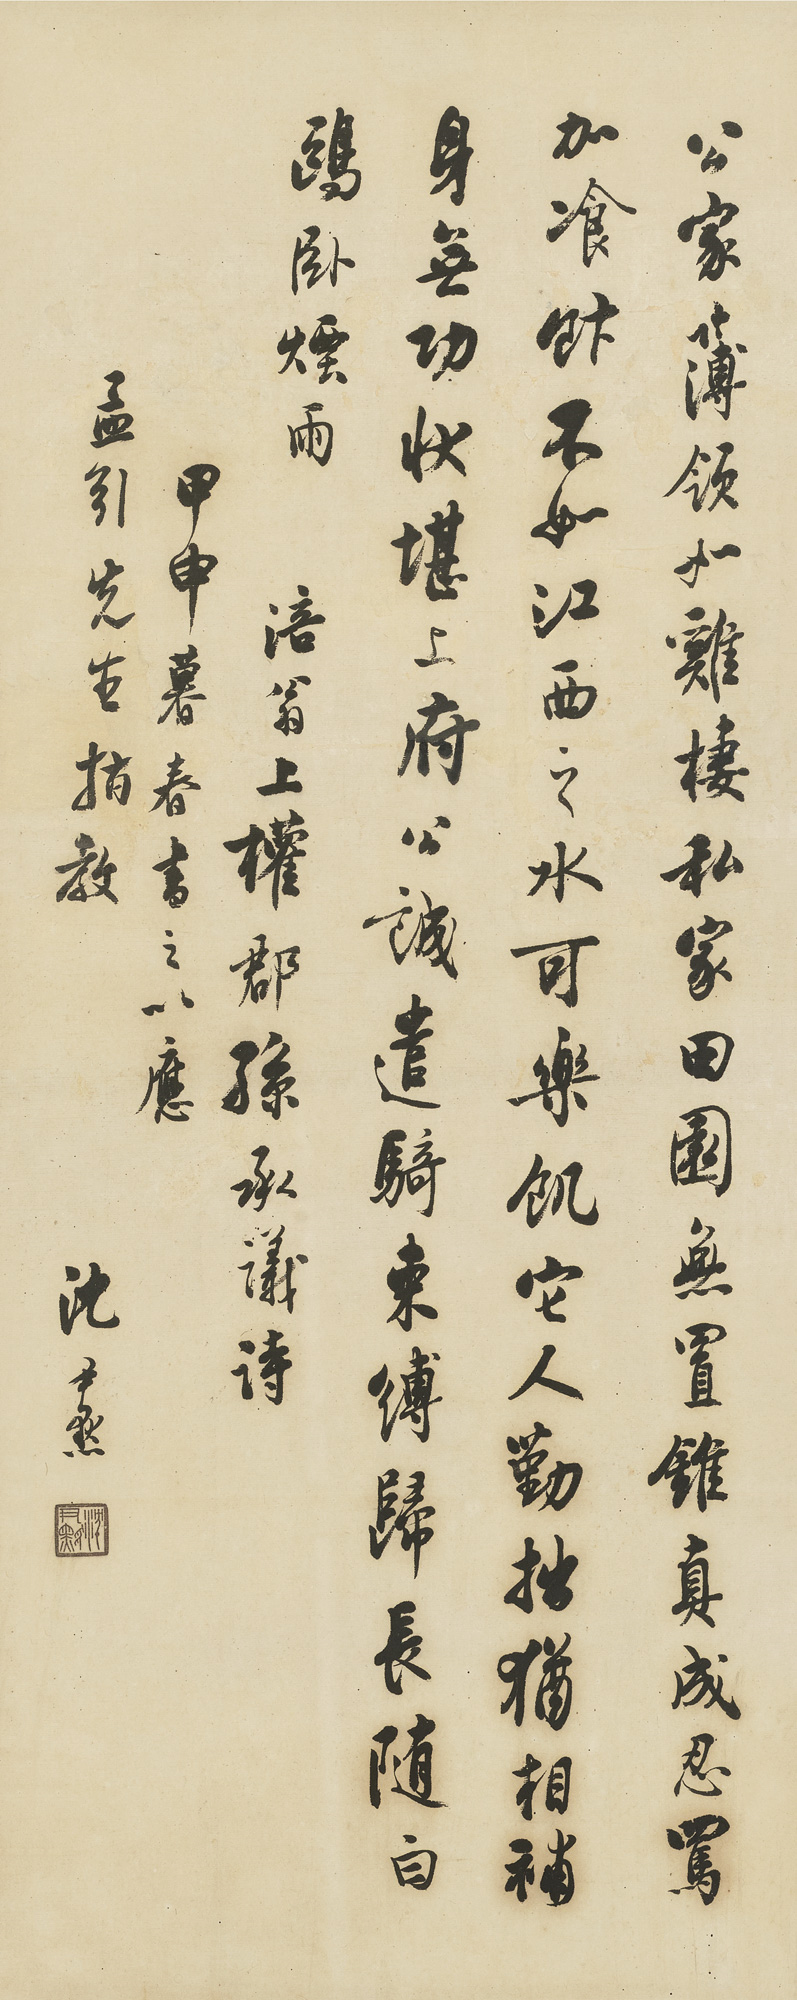 公家簿領如雞棲私家田園無置錐真成忍罵
加飡飰不如江西之水可樂飢它人勤拙猶相補
身無功狀堪上府公誠遣騎束縛歸長隨白
鷗臥煙雨
涪翁上權郡孫承議詩
甲申暮春書之以應
孟引先生指教
沈尹默
沈尹默